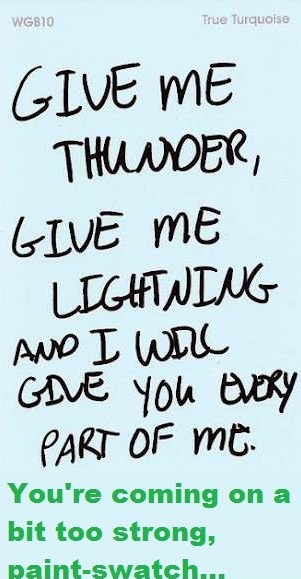 WGB10 True Turquoise
GIVE ME
THUNDER,
GIVE ME
LIGHTNING
AND I WILL
GIVE YOU EVERY
PART OF ME.
You're coming on a
bit too strong,
paint-swatch...